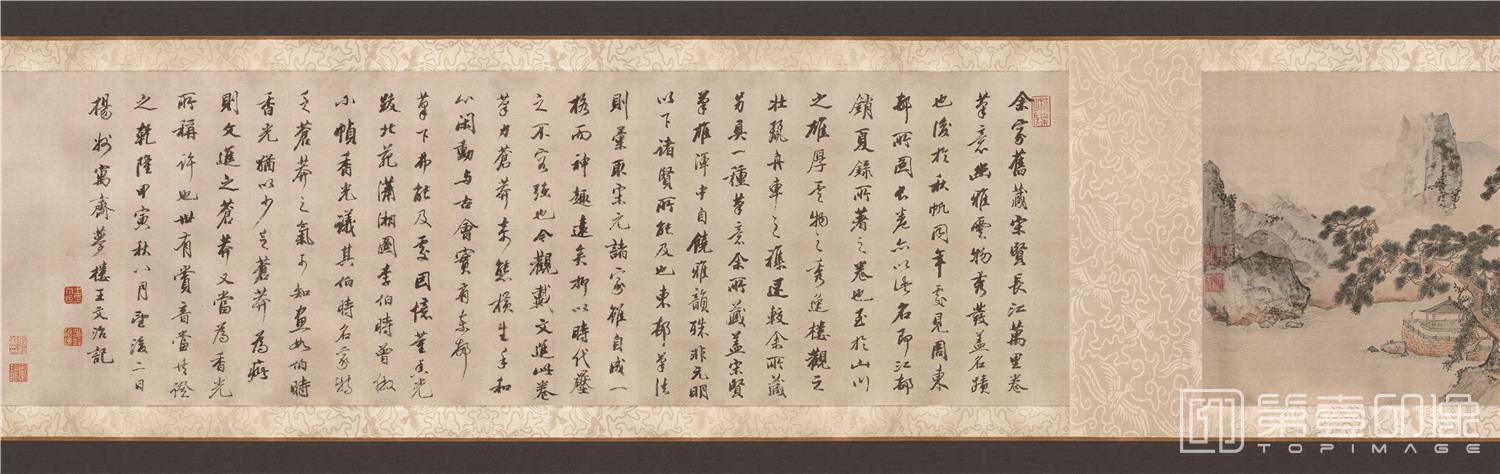 余家舊藏宋賢長江萬里卷
筆意幽雅雲物秀發蓋名蹟
也後於秋帆同年處見周東
邨所圖長卷亦以此名即江邨
銷夏錄所著之卷也至於山川
之雄厚雲物之秀逸樓觀之
壯麗舟車之雜遝較余所藏
另具一種筆意余所藏蓋宋賢
筆雄渾中自饒雅韻殊非元明
以下諸賢所能及也東邨筆法
則藁取宋元諸家雖自成一
格而神趣遠矣抑以時代壓
之不容強也今觀戴文進此卷
筆力蒼莽奇態橫生手和
心閑動與古會實有東邨
筆下弗能及處因憶董香光
跋北苑瀟湘圖李伯時曾倣
小幀香光議其伯時名家特
乏蒼莽之氣可知畫如伯時
香光猶以少乏蒼莽為病
則文進之蒼莽又當為香光
所稱許也世有賞音當共證
之乾隆甲寅秋八月望後二日
揚州寓齋夢樓王文治記
第壹印像
TOPIMAGE